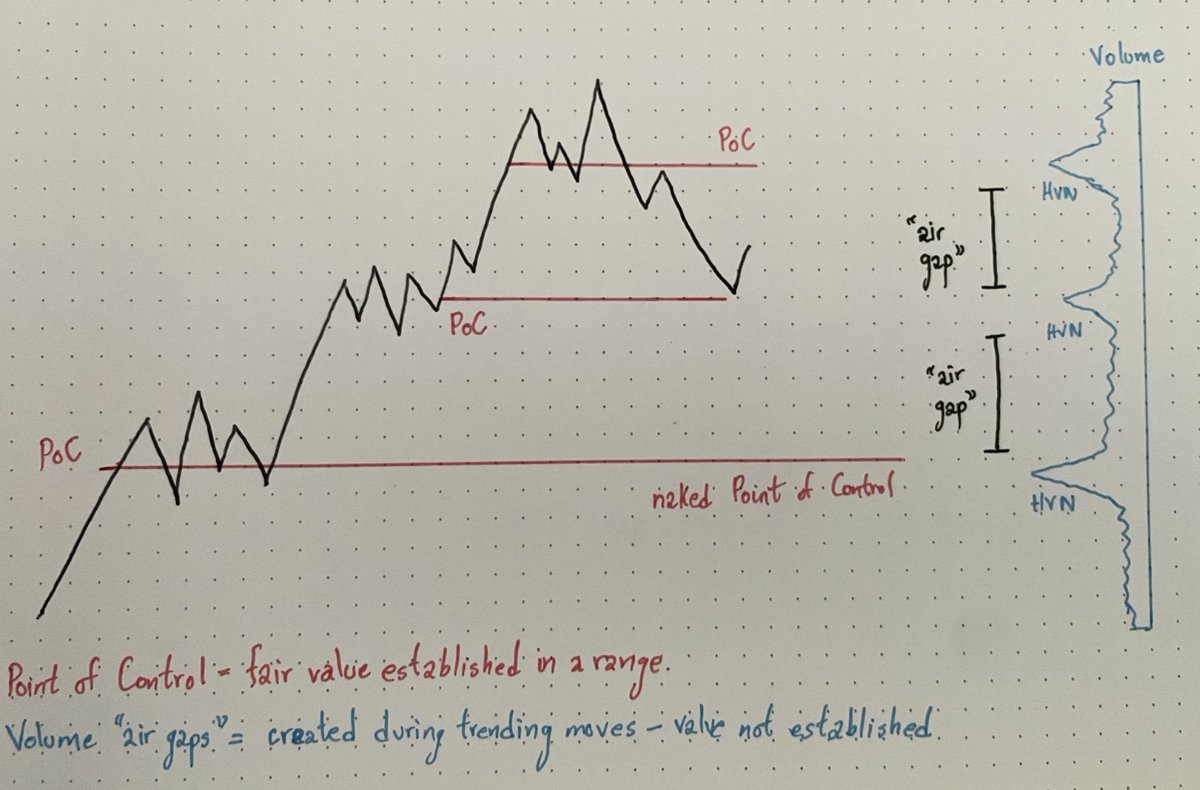 Volume
PoC
HVN
"air
gap"
PoC
HVN
"air
gap"
PoC
naked Point of Control
HVN
Point of Control = fair value established in a range.
Volume "air gaps" = created during trending moves - value not established.